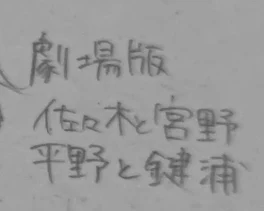 劇場版
佐々木と宮野
平野と鍵浦